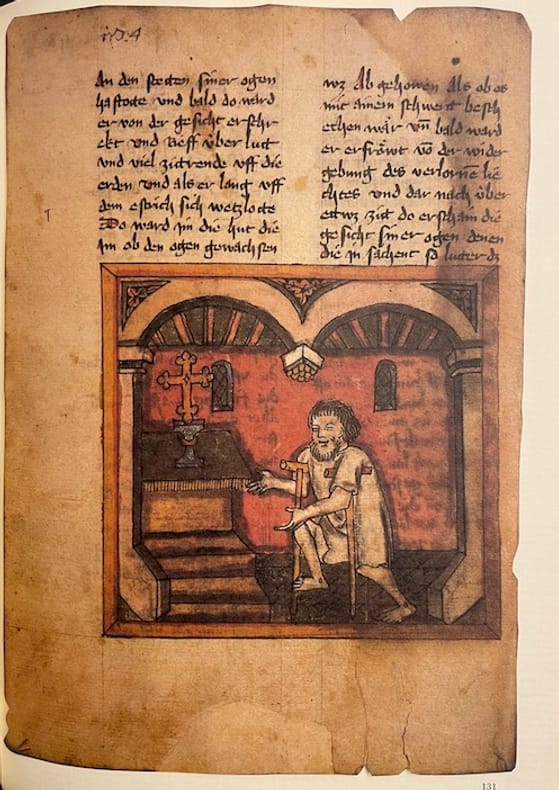 174
An den stetten siner ogen
hastote vnd bald do ward
er von der gesicht erschr
ekt vnd Reff über lut
vnd viel zittrende vff die
erden vnd als er lang vff
dem estrich sich weltzlocte
Do ward im die hut die
im ob den ogen gewachsen
wz Ab gehowen Als ob es
mit ainem schwert besch
echen wär vn̄ bald ward
er erfröwt vō der wider
gebung des verlorne lie
chtes vnd dar nach über
ettwz zitt do erschain die
gesicht siner ogen denen
die in sachent so luter dz
131